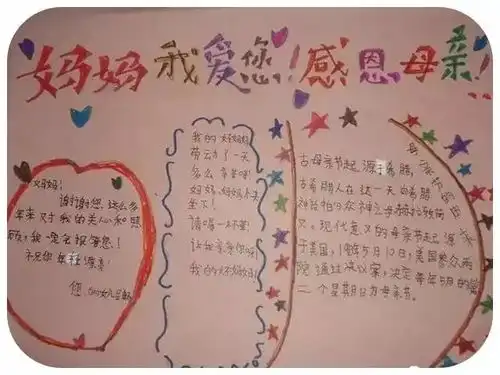 妈妈我爱您!感恩母亲!
妈妈!
谢谢您这么多
年来对我的关心和照
顾,我
您!
您的女儿
我的好妈妈
劳动了一天
多么辛苦呀!
妈妈,妈妈快
坐下!
请喝一杯茶!
让我亲亲你吧!
我的好妈妈
古母亲节起源于希腊,
古希腊人在这一天向希腊
神话
众神之母赫拉致
。现代意义的母亲节起源
于美国,
5月10日,美国参众两
院通过决议案,决定每年5月的第
二个星期日为母亲节。